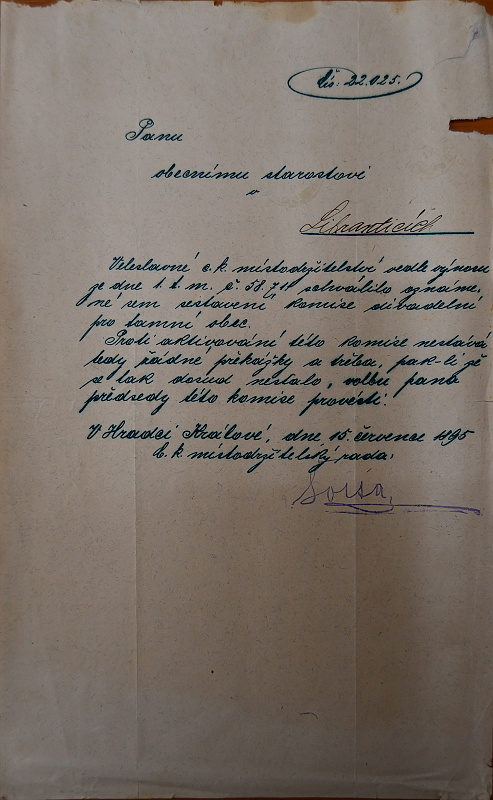 čís: 22.025.
Panu
obecnímu starostovi
v
Libranticích
Veleslavné c. k. místodržitelství vedle výnosu
ze dne 1. t. m. č. 58.711 schválilo oznáme-
né sem sestavení komise divadelní
pro tamní obec.
Proti aktivování této komise nestává
tedy žádné překážky a třeba, pak-li že
se tak dosud nestalo, volbu pana
předsedy této komise provésti.
V Hradci Králové, dne 15. července 1895
C. k. místodržitelský rada: